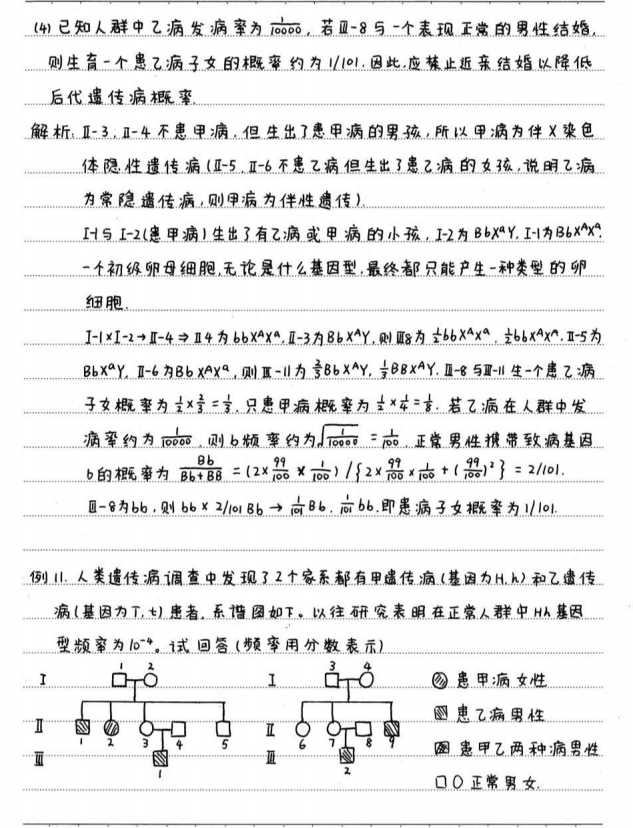 (4) 已知人群中乙病发病率为 1/10000, 若Ⅲ-8与一个表现正常的男性结婚,
则生育一个患乙病子女的概率约为1/101.因此,应禁止近亲结婚以降低
后代遗传病概率.
解析: Ⅱ-3, Ⅱ-4不患甲病,但生出了患甲病的男孩,所以甲病为伴X染色
体隐性遗传病(Ⅱ-5, Ⅱ-6不患乙病但生出了患乙病的女孩,说明乙病
为常隐遗传病,则甲病为伴性遗传)
Ⅰ-1与Ⅰ-2(患甲病)生出了有乙病或甲病的小孩, Ⅰ-2为BbXᵃY, Ⅰ-1为BbXᴬXᵃ.
一个初级卵母细胞,无论是什么基因型,最终都只能产生一种类型的卵
细胞.
Ⅰ-1×Ⅰ-2→Ⅱ-4⇒Ⅱ4为bbXᴬXᵃ,Ⅱ-3为BbXᴬY,则Ⅲ8为½bbXᴬXᵃ,½bbXᴬXᴬ.Ⅱ-5为
BbXᵃY, Ⅱ-6为BbXᴬXᵃ,则Ⅲ-11为⅔BbXᴬY,⅓BBXᴬY.Ⅲ-8与Ⅲ-11生一个患乙病
子女概率为½×⅔=⅓.只患甲病概率为½×¼=⅛.若乙病在人群中发
病率约为1/10000,则b频率约为√(1/10000)=1/100.正常男性携带致病基因
b的概率为 Bb/(Bb+BB) =(2×99/100×1/100)/{2×99/100×1/100+(99/100)²}=2/101.
Ⅲ-8为bb,则bb×2/101Bb→1/101Bb.1/101bb.即患病子女概率为1/101.
例11. 人类遗传病调查中发现了2个家系都有甲遗传病(基因为H,h)和乙遗传
病(基因为T,t)患者,系谱图如下。以往研究表明在正常人群中Hh基因
型频率为10⁻⁴。试回答(频率用分数表示)
Ⅰ 1 2 Ⅰ 3 4 患甲病女性
患乙病男性
Ⅱ 1 2 3 4 5 Ⅱ 6 7 8 9
患甲乙两种病男性
Ⅲ 1 Ⅲ 2
正常男女.